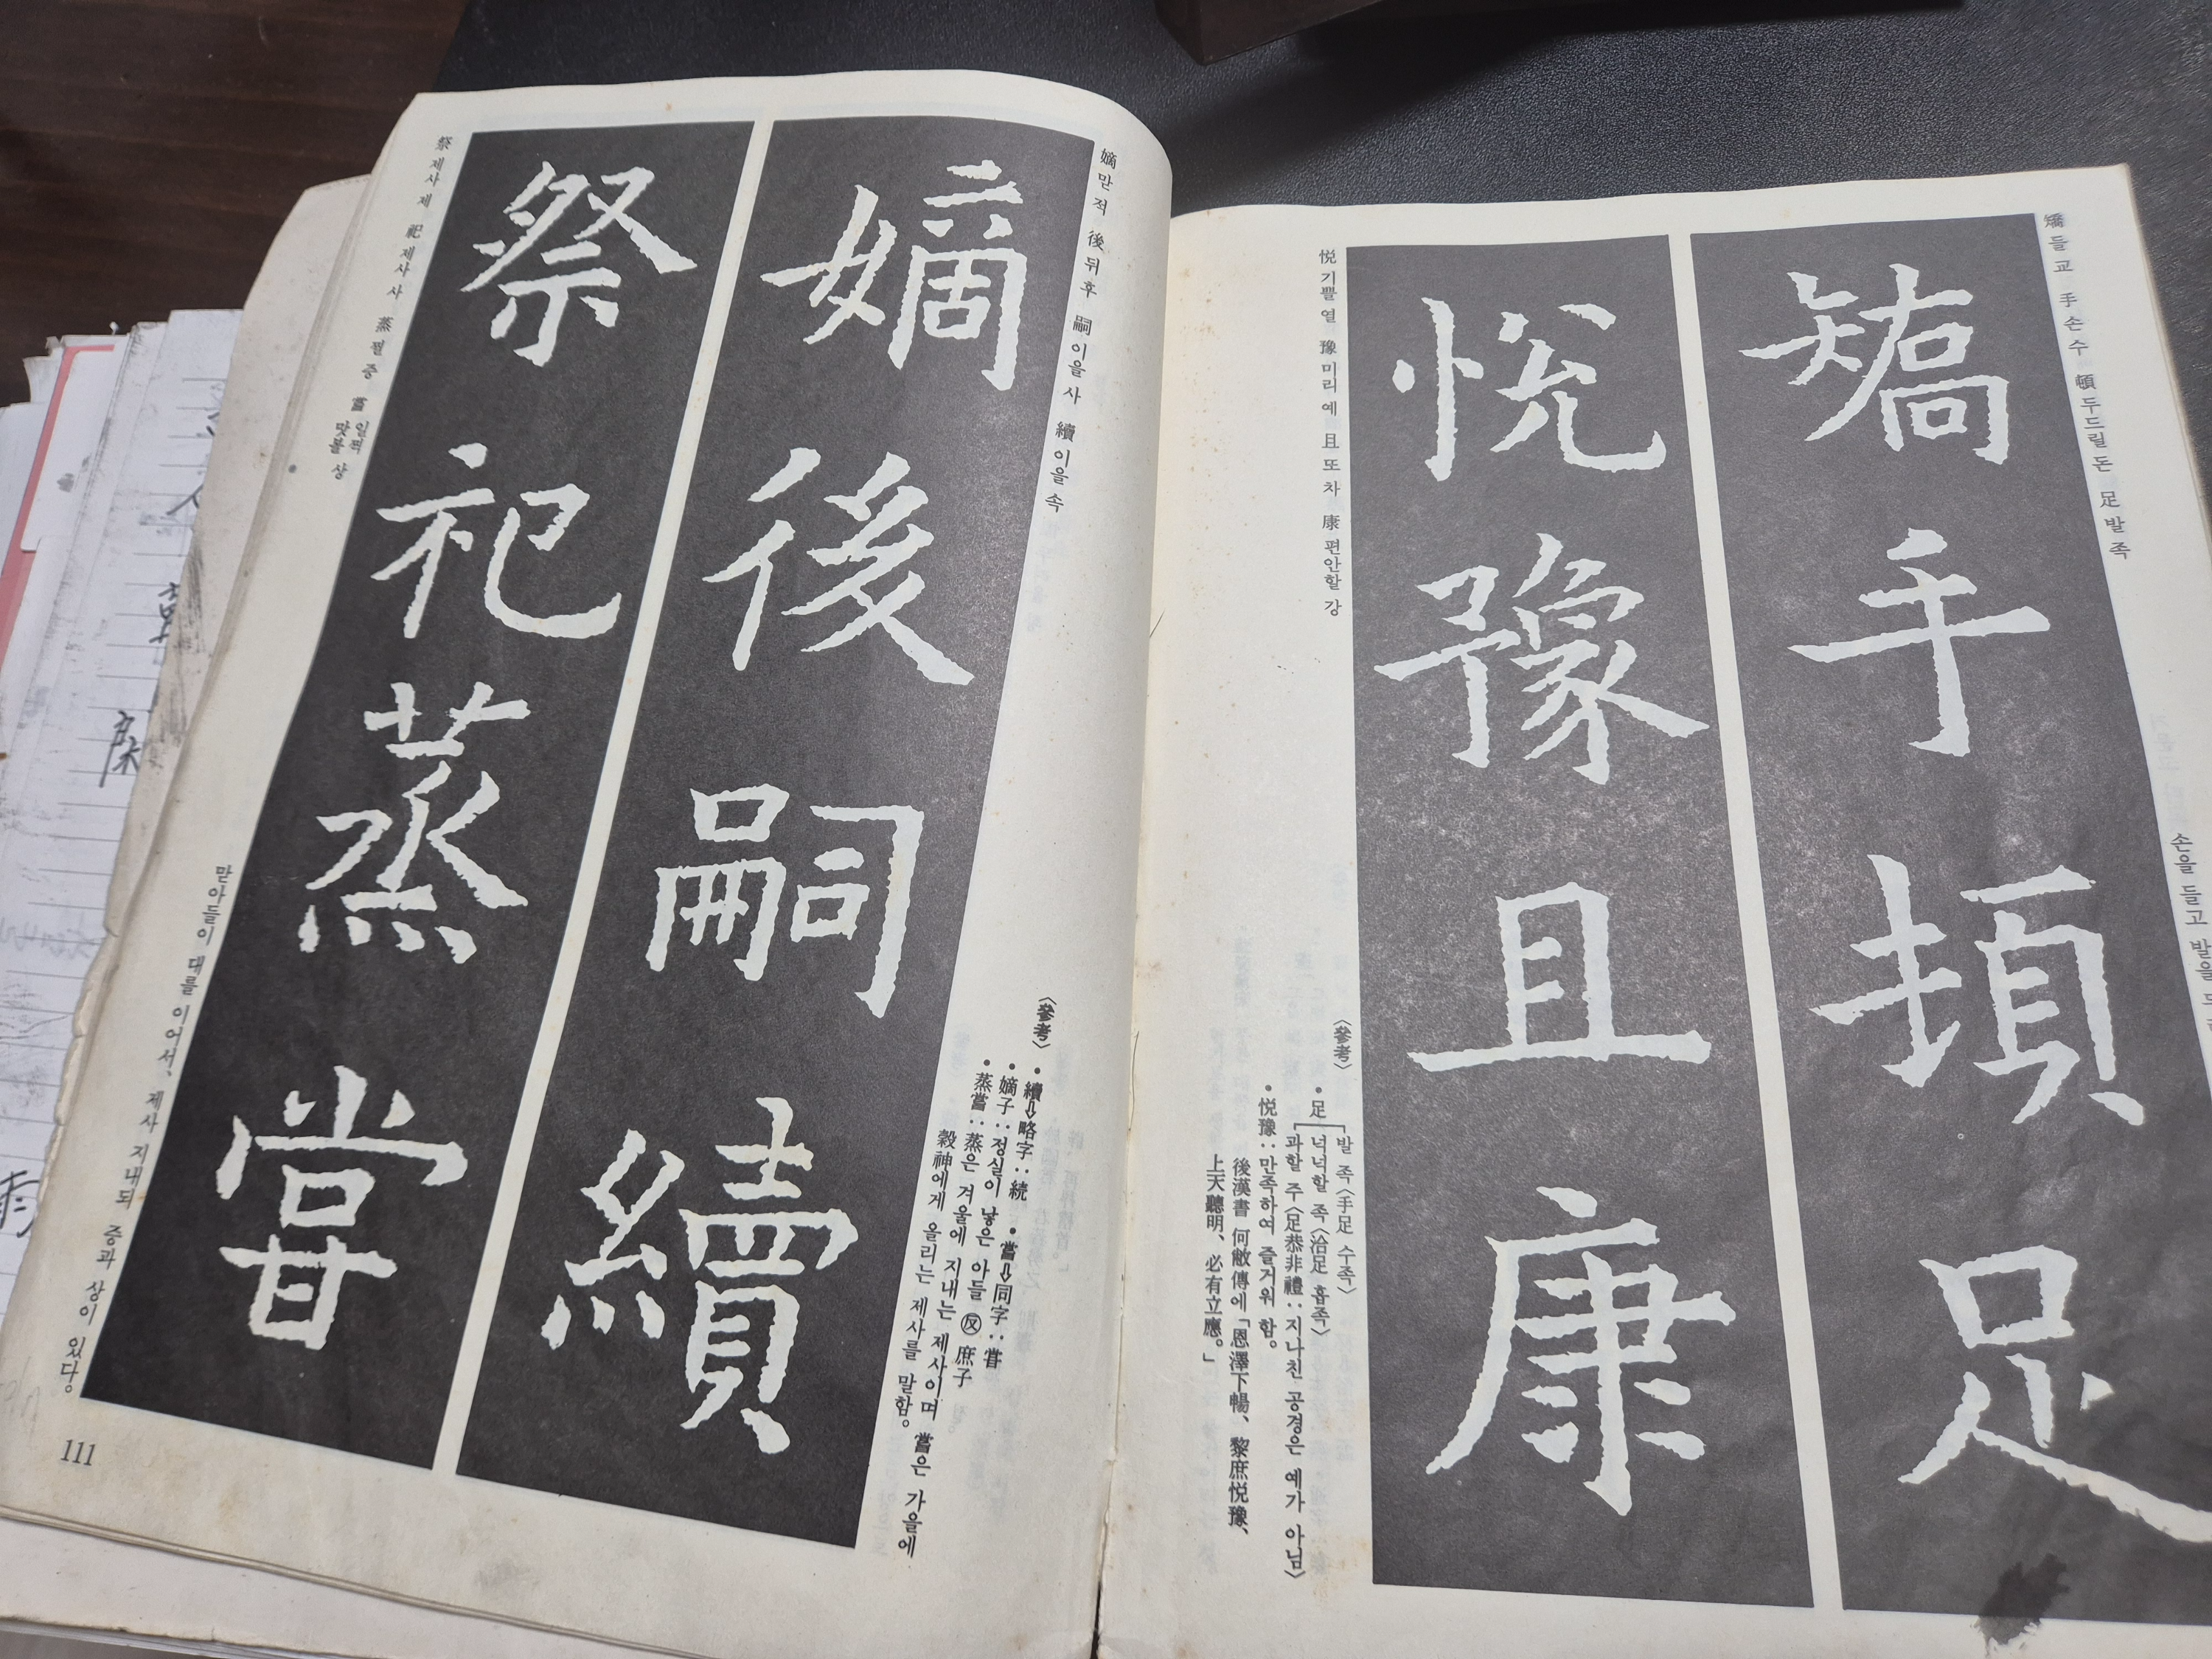 矯 들 교 手 손 수 頓 두드릴 돈 足 발 족
손을 들고 발을
矯手頓足
悅豫且康
悅 기쁠 열 豫 미리 예 且 또 차 康 편안할 강
〈參考〉
• 足 발 족〈手足 수족〉
넉넉할 족〈洽足 흡족〉
과할 주〈足恭非禮：지나친 공경은 예가 아님〉
• 悅豫：만족하여 즐거워 함。
後漢書 何敞傳에「恩澤下暢、黎庶悅豫、
上天聽明、必有立應。」
嫡 맏 적 後 뒤 후 嗣 이을 사 續 이을 속
〈參考〉
• 續⇨略字：続 • 嘗⇨同字：甞
• 嫡子：정실이 낳은 아들 ㊫ 庶子
• 蒸嘗：蒸은 겨울에 지내는 제사이며 嘗은 가을에
穀神에게 올리는 제사를 말함。
嫡後嗣續
祭祀蒸嘗
祭 제사 제 祀 제사 사 蒸 찔 증 嘗 일찍 맛볼 상
맏아들이 대를 이어서、제사 지내되 증과 상이 있다。
111